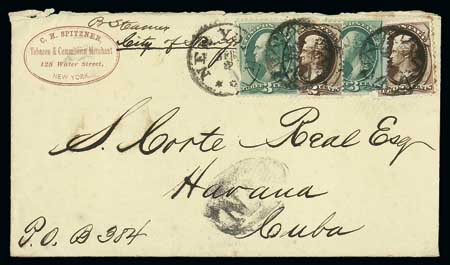 C. H. SPITZNER,
Tobacco & Commission Merchant
128 Water Street,
NEW YORK.
Pr Steamer
City of
NEW Y
S. Corte Real Esq
Havana
Cuba
P.O. B 384